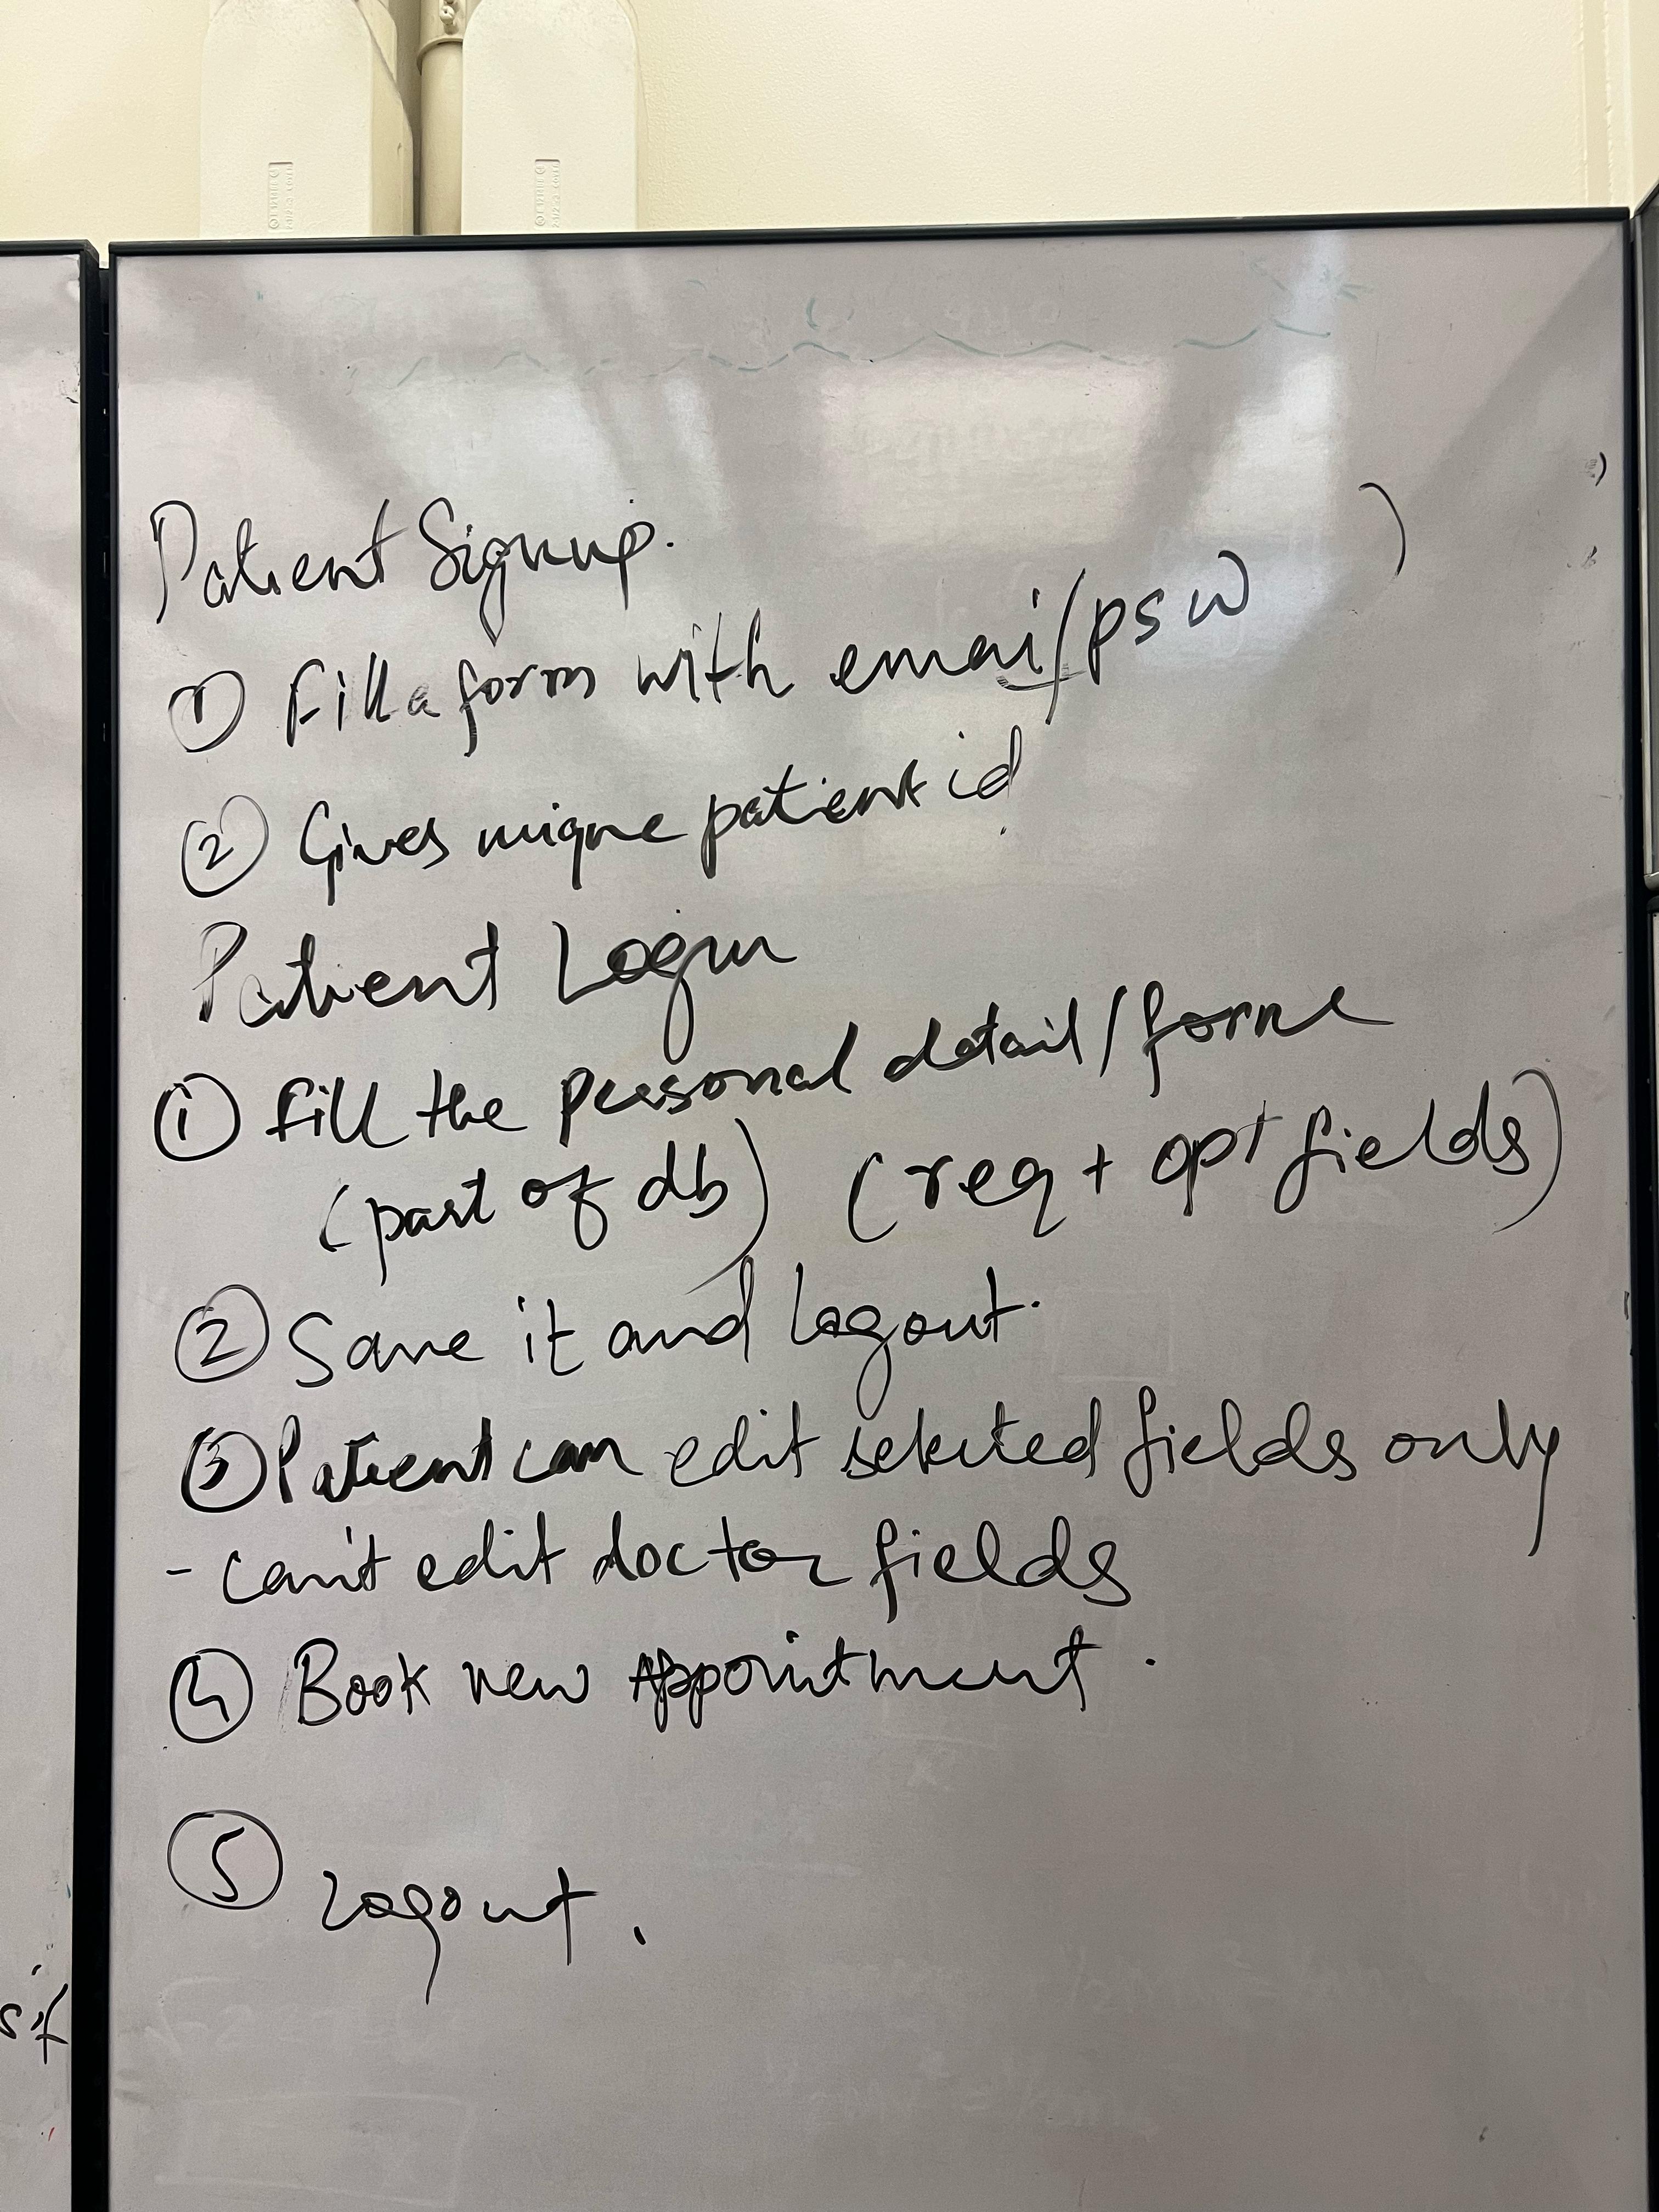 Patient Signup.
① Fill a form with emai/psw
② Gives unique patient id
Patient Login
① fill the personal detail/forme
(part of db) (req + opt fields)
② Save it and logout.
③ Patient can edit selected fields only
- can't edit doctor fields
④ Book new Appointment.
⑤ Logout.